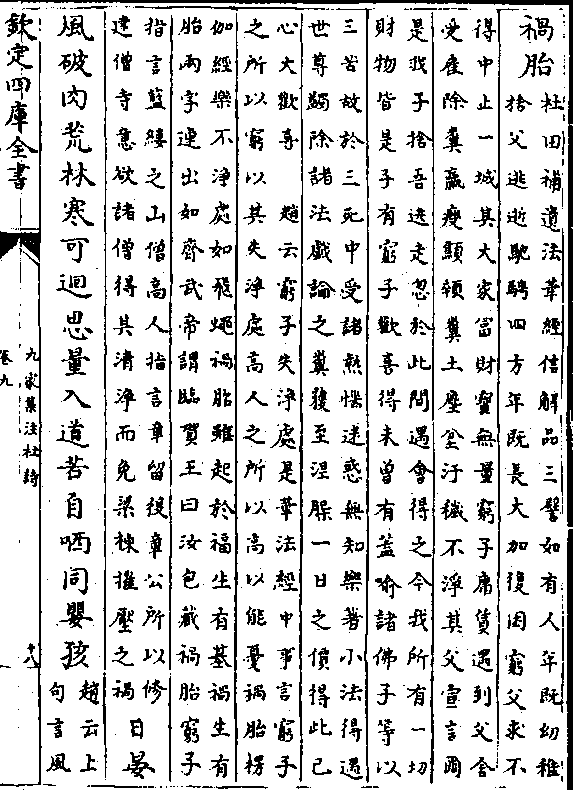 禍胎
杜田補遺法華經信解品三譬如有人年既幼稚
捨父逃逝馳騁四方年既長大加復困窮父求不
得中止一城其大家富財寳無量窮子庸賃遇到父舎
受雇除糞羸瘦顦顇糞土塵坌汙穢不淨其父宣言爾
是我子捨吾逃走忽於此間遇會得之今我所有一切
財物皆是子有窮子歡喜得未曾有蓋喻諸佛子等以
三苦故於三死中受諸熱惱迷惑無知樂著小法得遇
世尊蠲除諸法戲論之糞獲至涅槃一日之價得此已
心大歡喜 趙云窮子失淨處是華法經中事言窮子
之所以窮以其失淨處高人之所以高以能憂禍胎楞
伽經樂不淨處如飛蠅禍胎雖起於福生有基禍生有
胎兩字連出如齊武帝謂臨賀王曰汝包藏禍胎窮子
指言藍縷之山僧高人指言章留後章公所以修
達僧寺意欲諸僧得其清淨而免梁棟摧壓之禍
日晏
風破肉荒林寒可迴思量入道苦自哂同嬰孩
趙云上
句言風
欽定四庫全書
九家集注杜詩
卷九
十八